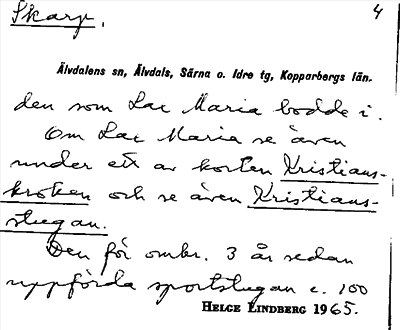 Skarp.
4
Älvdalens sn, Älvdals, Särna o. Idre tg, Kopparbergs län.
den som Lac Maria bodde i.
Om Lac Maria se även
under ett av korten Kristians-
kroken och se även Kristians-
stugan.
Den för ombr. 3 år sedan
uppförda sportstugan c. 100
HELGE LINDBERG 1965.